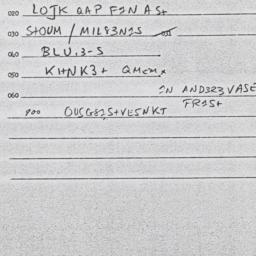 020 LOJK QAP F2N AS+
030 S+OUM / MIL83N2S
040 BLU.3-S
050 KHNK3+ QMCM x
060 IN AND323VASE
FR2S+
900 OUSG82S+VESNKT